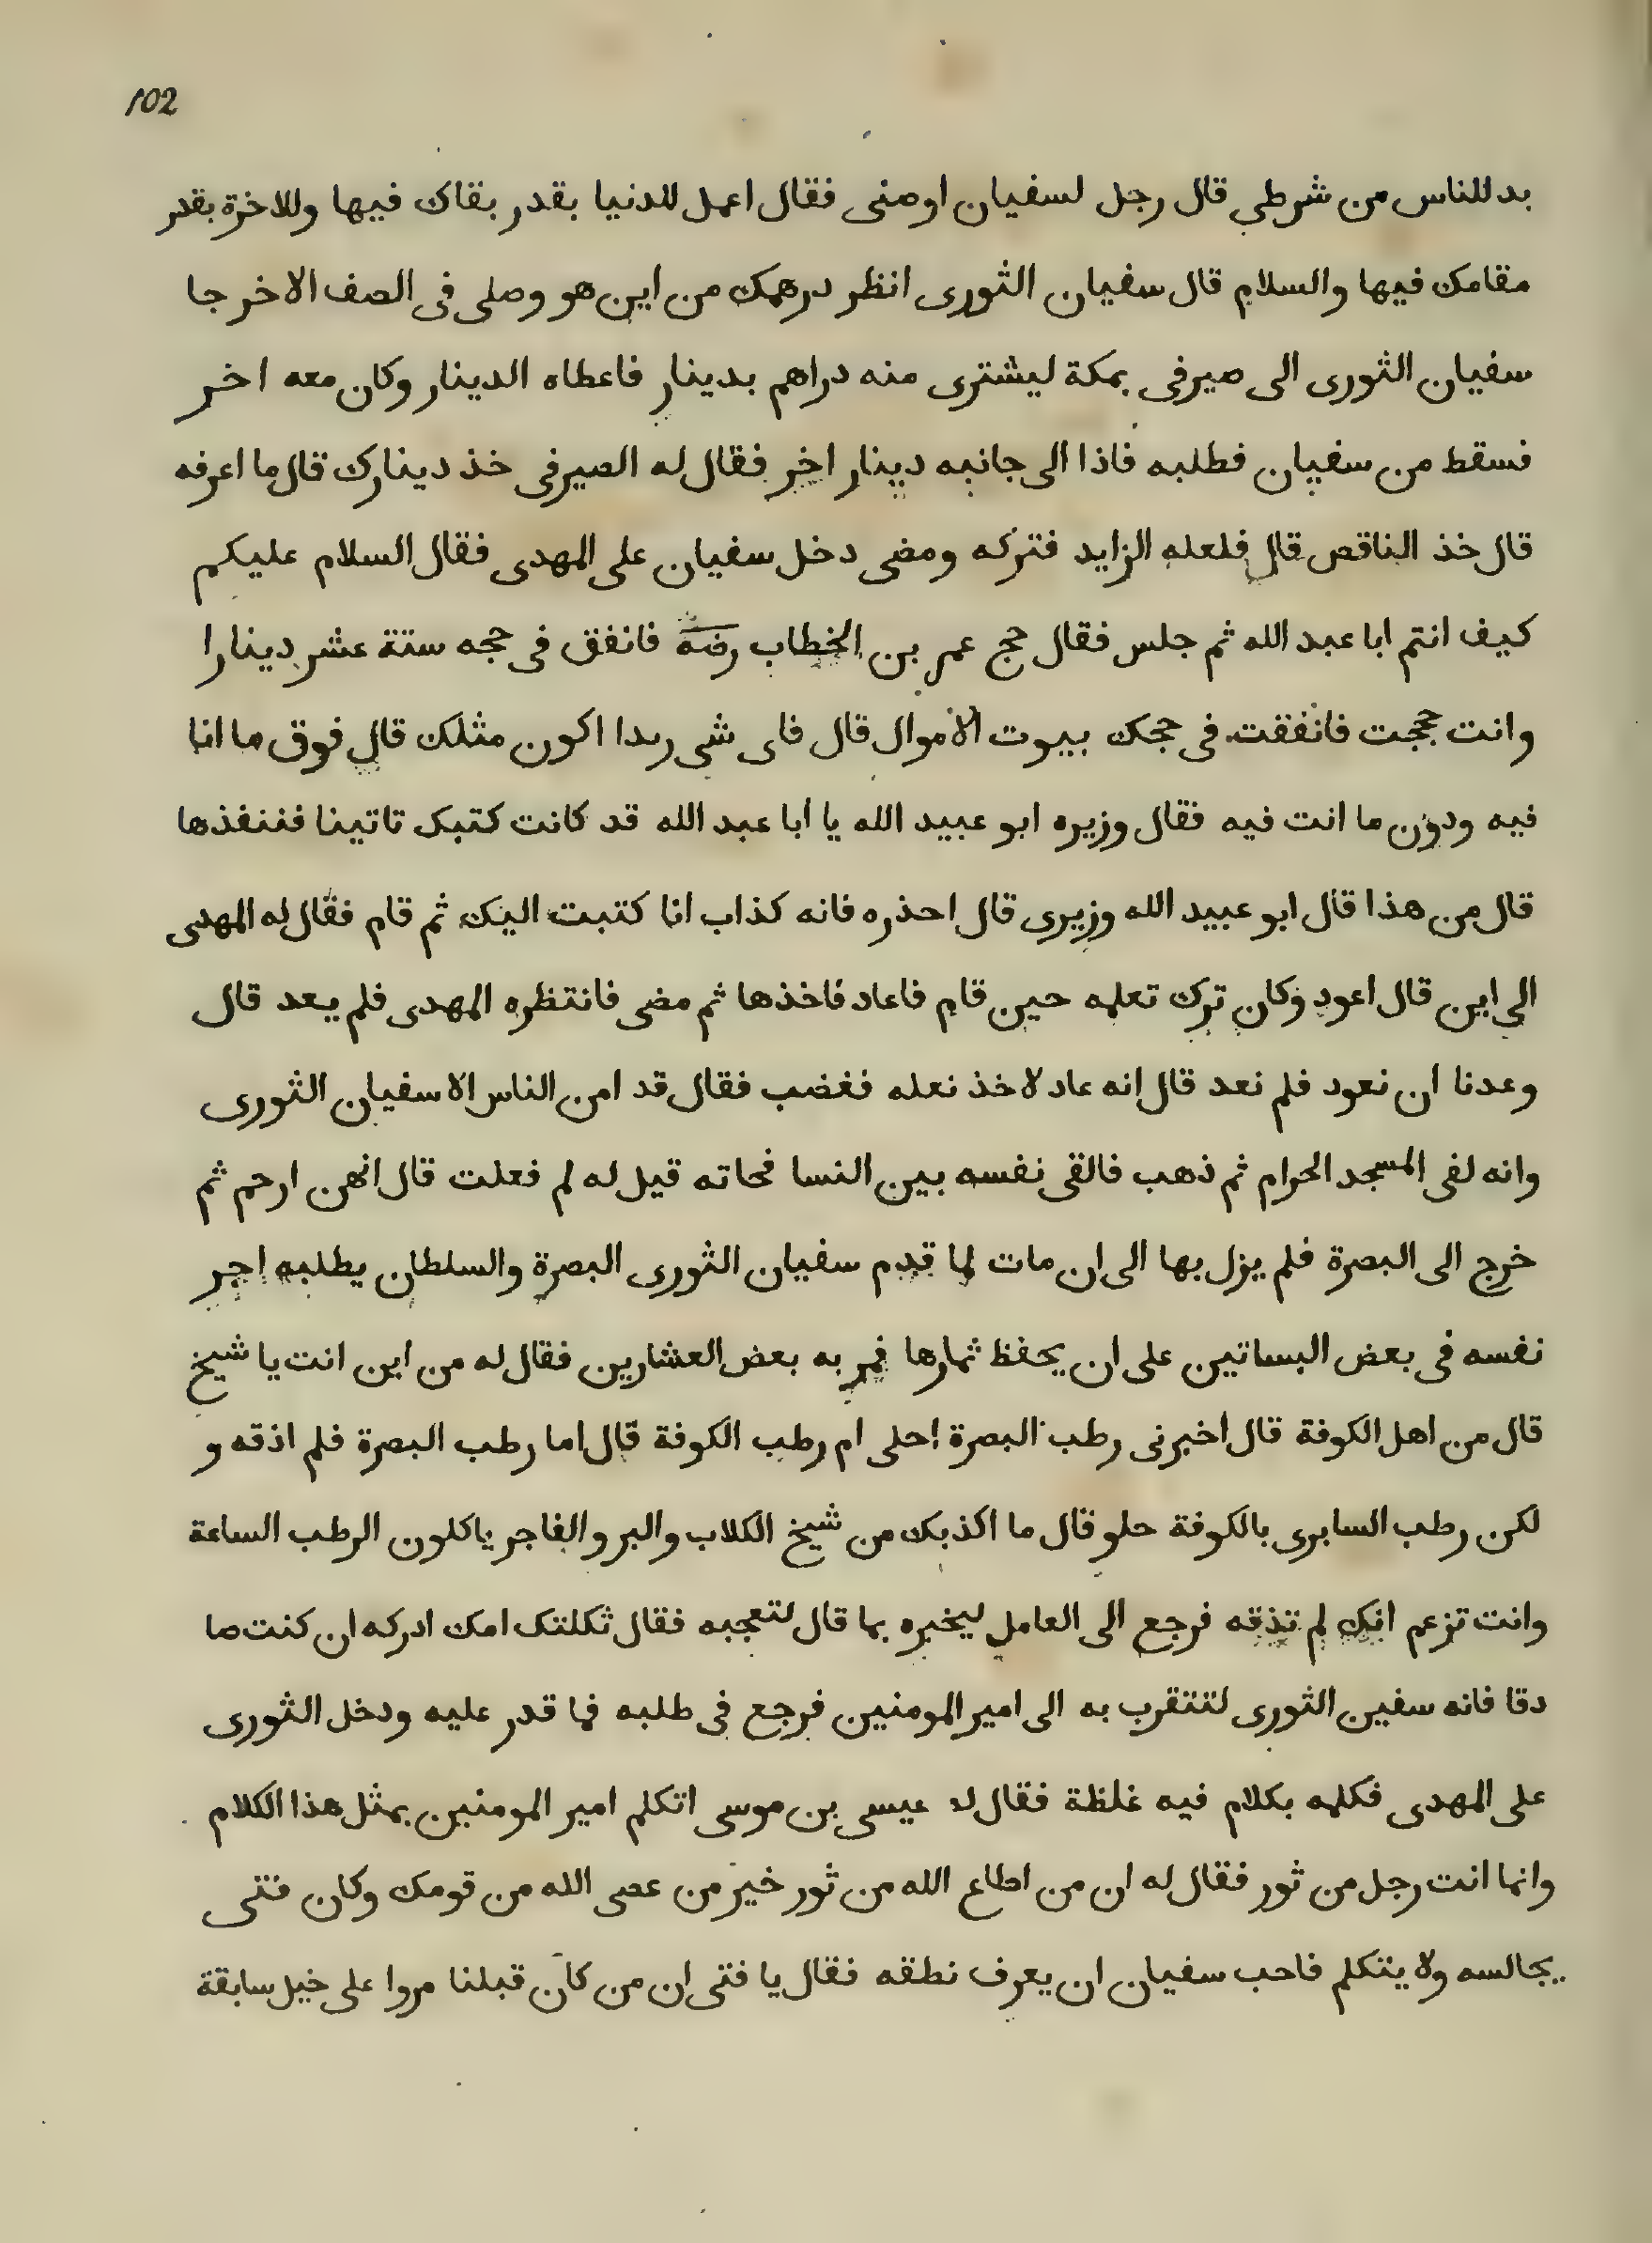 102
بد للناس من شرطي قال رجل لسفيان اوصنى فقال اعمل للدنيا بقدر بقاك فيها وللاخرة بقدر
مقامك فيها والسلام قال سفيان الثورى انظر درهمك من اين هو وصلى فى الصف الاخر جا
سفيان الثورى الى صيرفى بمكة ليشترى منه دراهم بدينار فاعطاه الدينار وكان معه اخر
فسقط من سفيان فطلبه فاذا الى جانبه دينار اخر فقال له الصيرفى خذ دينارك قال ما اعرفه
قال خذ الناقص قال فلعله الزايد فتركه ومضى دخل سفيان على المهدى فقال السلام عليكم
كيف انتم ابا عبد الله ثم جلس فقال حج عمر بن الخطاب رضه فانفق فى حجه ستة عشر دينارا
وانت حججت فانفقت فى حجك بيوت الاموال قال فاى شى اكون مثلك قال فوق ما انا
فيه ودون ما انت فيه فقال وزيره ابو عبيد الله يا ابا عبد الله قد كانت كتبك تاتينا فننفذها
قال من هذا قال ابو عبيد الله وزيرى قال احذره فانه كذاب انا كتبت اليك ثم قام فقال له المهدى
الى اين قال اعود وكان ترك نعله حين قام فاعاد فاخذها ثم مضى فانتظره المهدى فلم يعد قال
وعدنا ان نعود فلم نعد قال انه عاد لاخذ نعله فغضب فقال قد امن الناس الا سفيان الثورى
وانه لفى المسجد الحرام ثم ذهب فالقى نفسه بين النسا فحاته قيل له لم فعلت قال انهن ارحم ثم
خرج الى البصرة فلم يزل بها الى ان مات لما قدم سفيان الثورى البصرة والسلطان يطلبه اجر
نفسه فى بعض البساتين على ان يحفظ ثمارها فمر به بعض العشارين فقال له من اين انت يا شيخ
قال من اهل الكوفة قال اخبرنى رطب البصرة احلى ام رطب الكوفة قال اما رطب البصرة فلم اذقه و
لكن رطب السابرى بالكوفة حلو قال ما اكذبك من شيخ الكلاب والبر والفاجر ياكلون الرطب الساعة
وانت تزعم انك لم تذقه فرجع الى العامل ليخبره بما قال لتعجبه فقال ثكلتك امك ادركه ان كنت صا
دقا فانه سفين الثورى لتتقرب به الى امير المومنين فرجع فى طلبه فما قدر عليه ودخل الثورى
على المهدى فكلمه بكلام فيه غلظة فقال له عيسى بن موسى اتكلم امير المومنين بمثل هذا الكلام
وانما انت رجل من ثور فقال له ان من اطاع الله من ثور خير من عصى الله من قومك وكان فتى
يجالسه ولا يتكلم فاحب سفيان ان يعرف نطقه فقال يا فتى ان من كان قبلنا مروا على خيل سابقة